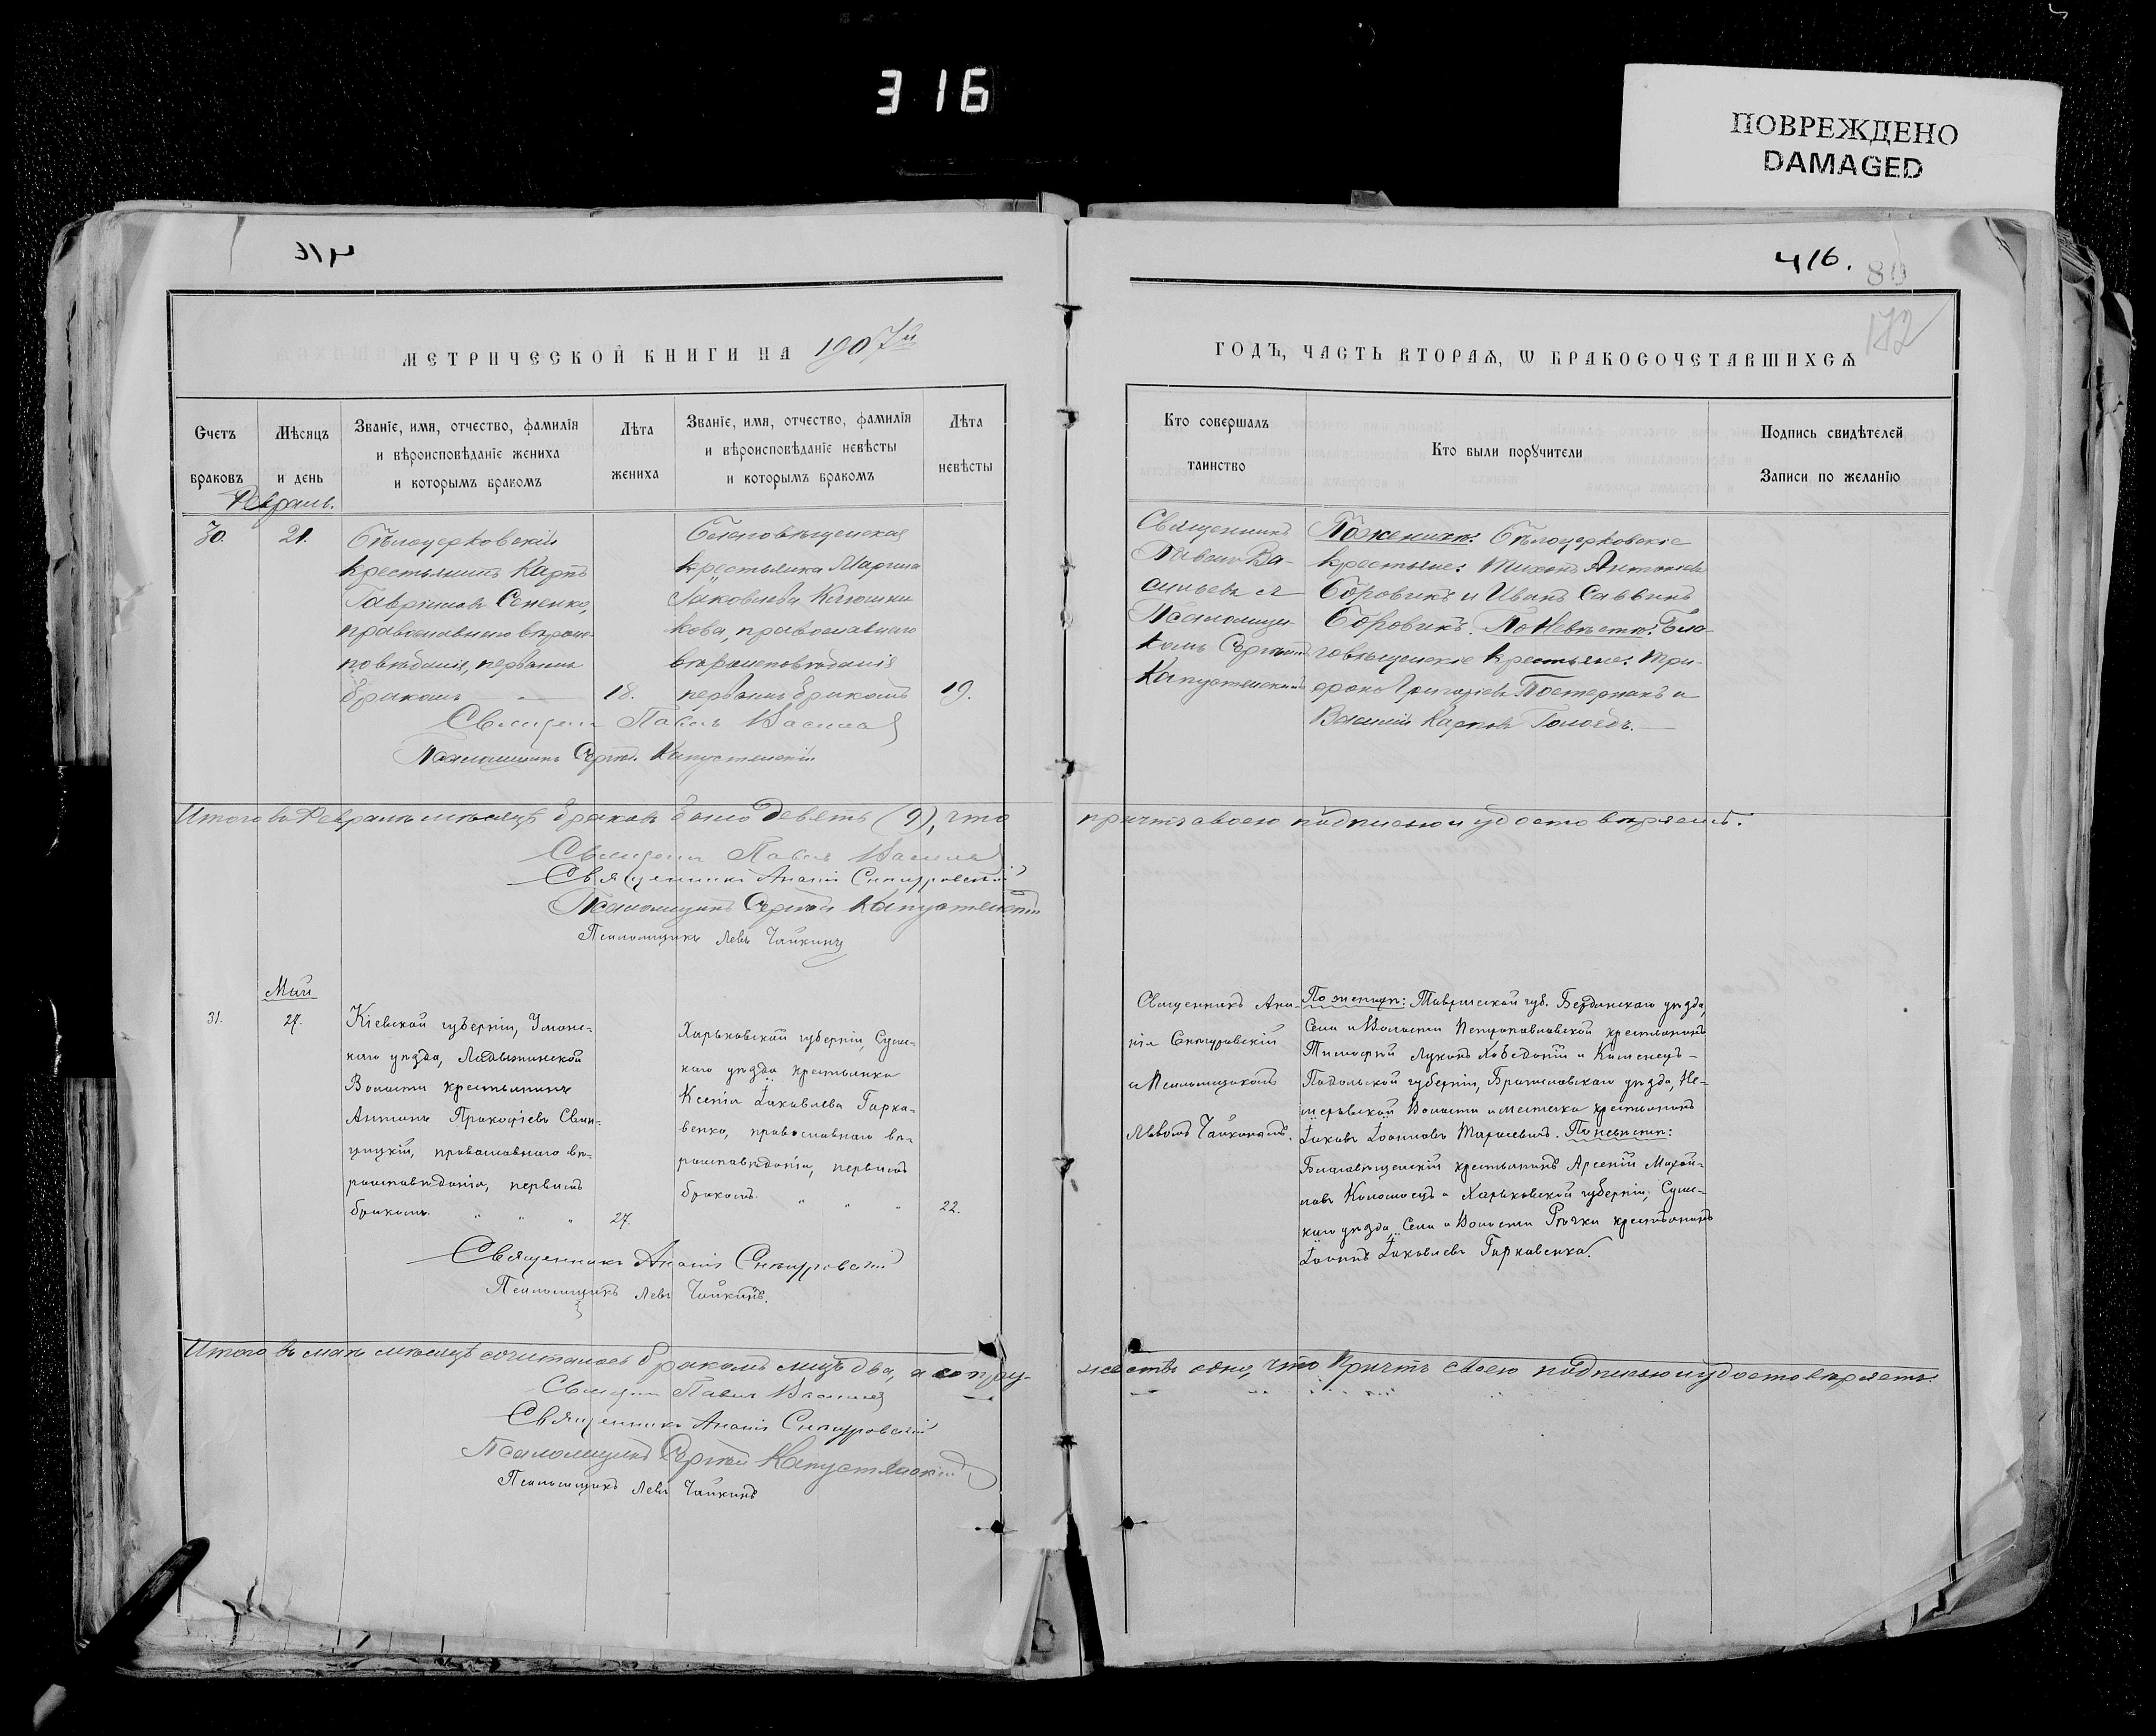 316
ПОВРЕЖДЕНО
DAMAGED
416
416.
80
172
МЕТРИЧЕСКОЙ КНИГИ НА 1907й
ГОДЪ, ЧАСТЬ ВТОРАѦ, Ѡ БРАКОСОЧЕТАВШИХСѦ
Счетъ браковъ
Мѣсяцъ и день
Званіе, имя, отчество, фамилія
и вѣроисповѣданіе жениха
и которымъ бракомъ
Лѣта жениха
Званіе, имя, отчество, фамилія
и вѣроисповѣданіе невѣсты
и которымъ бракомъ
Лѣта невѣсты
Кто совершалъ
таинство
Кто были порꙋчители
Подпись свидѣтелей
Записи по желанію
Февраль.
30.
21.
Бѣлоцерковскій
крестьянинъ Карпъ
Гавріиловъ Сененко,
православнаго вѣрои-
повѣданія, первымъ
бракомъ
18.
Благовѣщенская
крестьянка Марина
Іаковлева Клюшни
кова, православнаго
вѣроисповѣданія
первымъ бракомъ
19.
Священникъ
Павелъ Ва-
сильевъ съ
Псаломщи-
комъ Сергѣемъ
Капустянскимъ
По женихѣ: Бѣлоцерковскіе
крестьяне: Тихонъ Антоніевъ
Боровикъ и Иванъ Саввинъ
Боровикъ. По Невѣстѣ: Бла
говѣщенскіе крестьяне: Три-
фонъ Григоріевъ Постернакъ и
Василій Карповъ Голоѣдъ.
Священ. Павелъ Васильев
Псаломщикъ Сергѣй Капустянскій
Итого въ Февралѣ мѣсяцѣ браковъ было девять (9), что
причтъ своею подписью и удостовѣряетъ.
Священ. Павелъ Васильев
Священникъ Ананій Снѣгуровскій
Псаломщикъ Сергѣй Капустянскій
Псаломщикъ Левъ Чайкинъ
Май
31.
27.
Кіевской губерніи, Уманс-
каго уѣзда,
Волости крестьянинъ
Антонъ Прокофіевъ Свин-
цицкій, православнаго вѣ-
роисповѣданія, первымъ
бракомъ. " " "
27.
Харьковской губерніи, Сумс-
каго уѣзда крестьянка
Ксенія Іаковлева Гарка-
венко, православнаго вѣ-
роисповѣданія, первымъ
бракомъ. " " "
22.
Священникъ Ана-
нія Снѣгуровскій
и Псаломщикомъ
Львомъ Чайкинымъ.
По женихѣ: Таврической губ. Бердянскаго уѣзда,
Села и Волости Петропавловской крестьянинъ
Тимофей Лукинъ и Каменецъ-
Подольской губерніи, Брацлавскаго уѣзда, Не-
мировской Волости и местечка крестьянинъ
Іаковъ Іоанновъ. По невѣстѣ:
Благовѣщенскій крестьянинъ Арсеній Михай-
ловъ Коломоецъ и Харьковской губерніи, Сумс-
каго уѣзда, Села и Волости Рѣчки крестьянинъ
Іоаннъ Іаковлевъ Гаркавенко.
Священникъ Ананій Снѣгуровскій
Псаломщикъ Левъ Чайкинъ.
Итого въ маѣ мѣсяцѣ сочиталось бракомъ лицъ два, а супру-
жество одно, что Причтъ своею подписью и удостовѣряетъ.
Священ. Павелъ Васильев
Священникъ Ананій Снѣгуровскій
Псаломщикъ Сергѣй Капустянскій
Псаломщикъ Левъ Чайкинъ